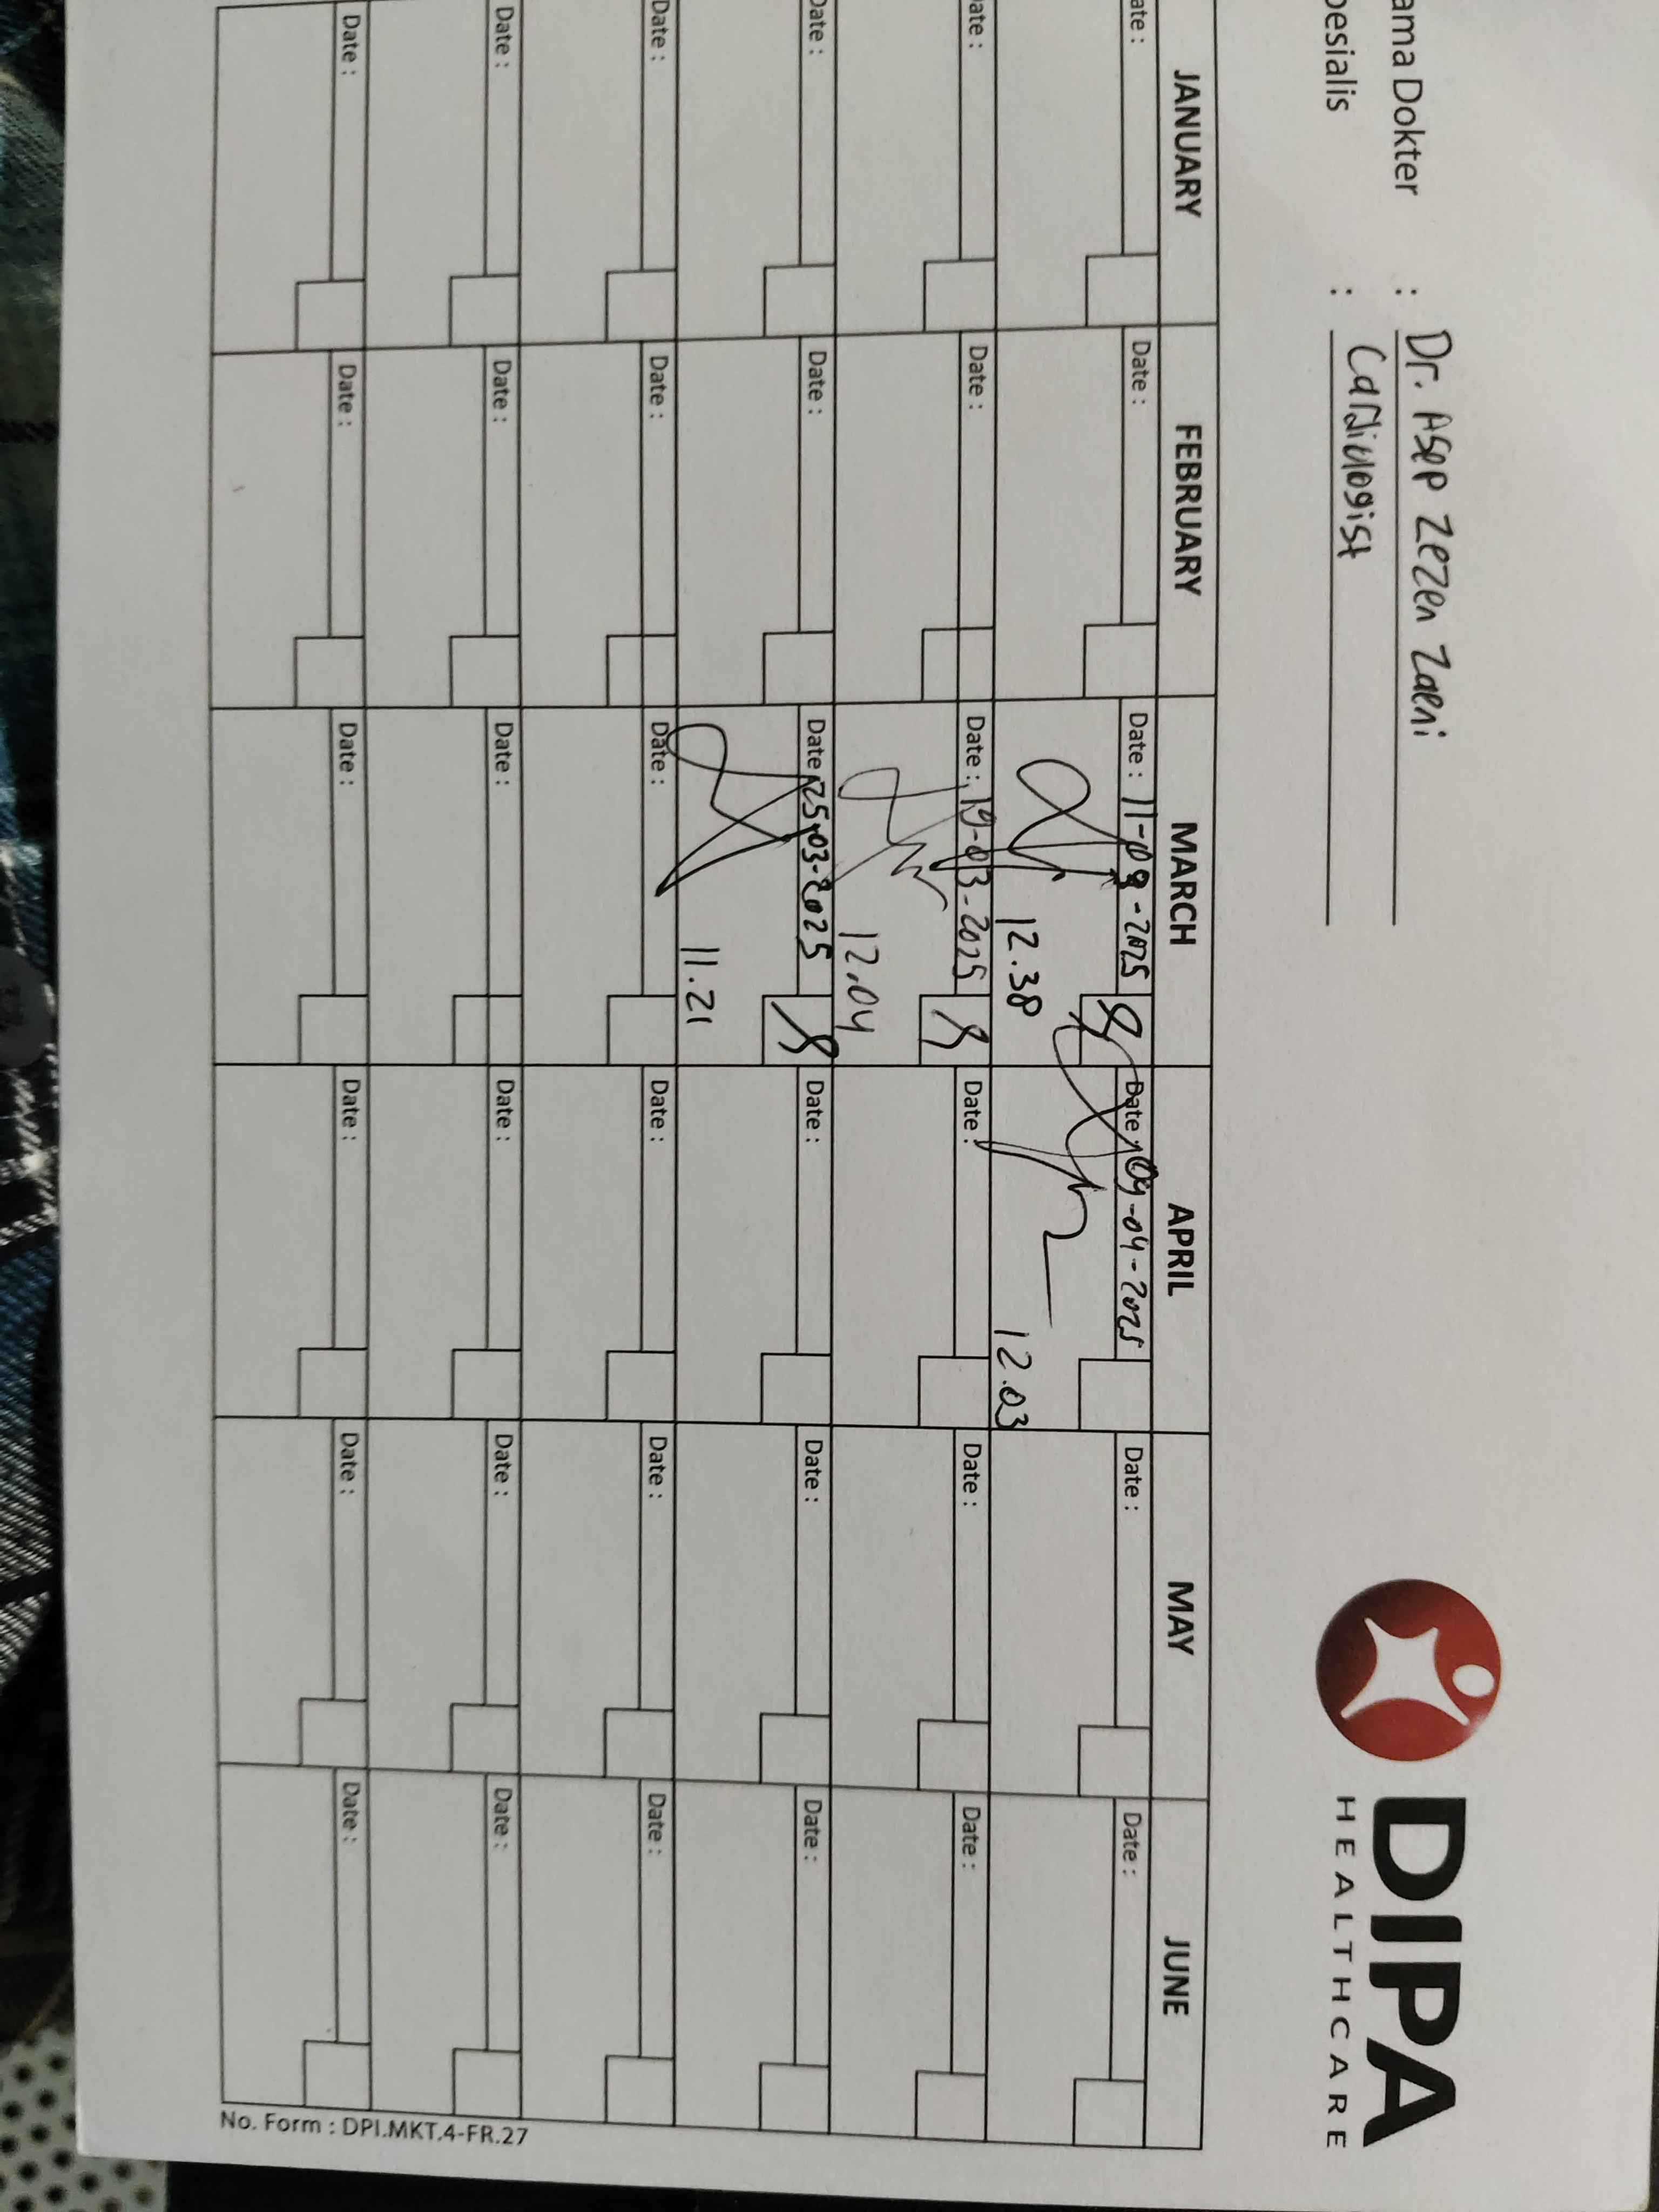 DIPA
HEALTHCARE
ama Dokter : Dr. Asep Zezen Zaeni
pesialis : Cardiologist
JANUARY FEBRUARY MARCH APRIL MAY JUNE
ate : Date : Date : 11-03-2025 Date : 09-04-2025 Date : Date :
12.38 12.03
ate : Date : Date : 19-03-2025 Date : Date : Date :
12.04
Date : Date : Date : 25-03-2025 Date : Date : Date :
11.21
Date : Date : Date : Date : Date : Date :
Date : Date : Date : Date : Date : Date :
Date : Date : Date : Date : Date : Date :
No. Form : DPI.MKT.4-FR.27